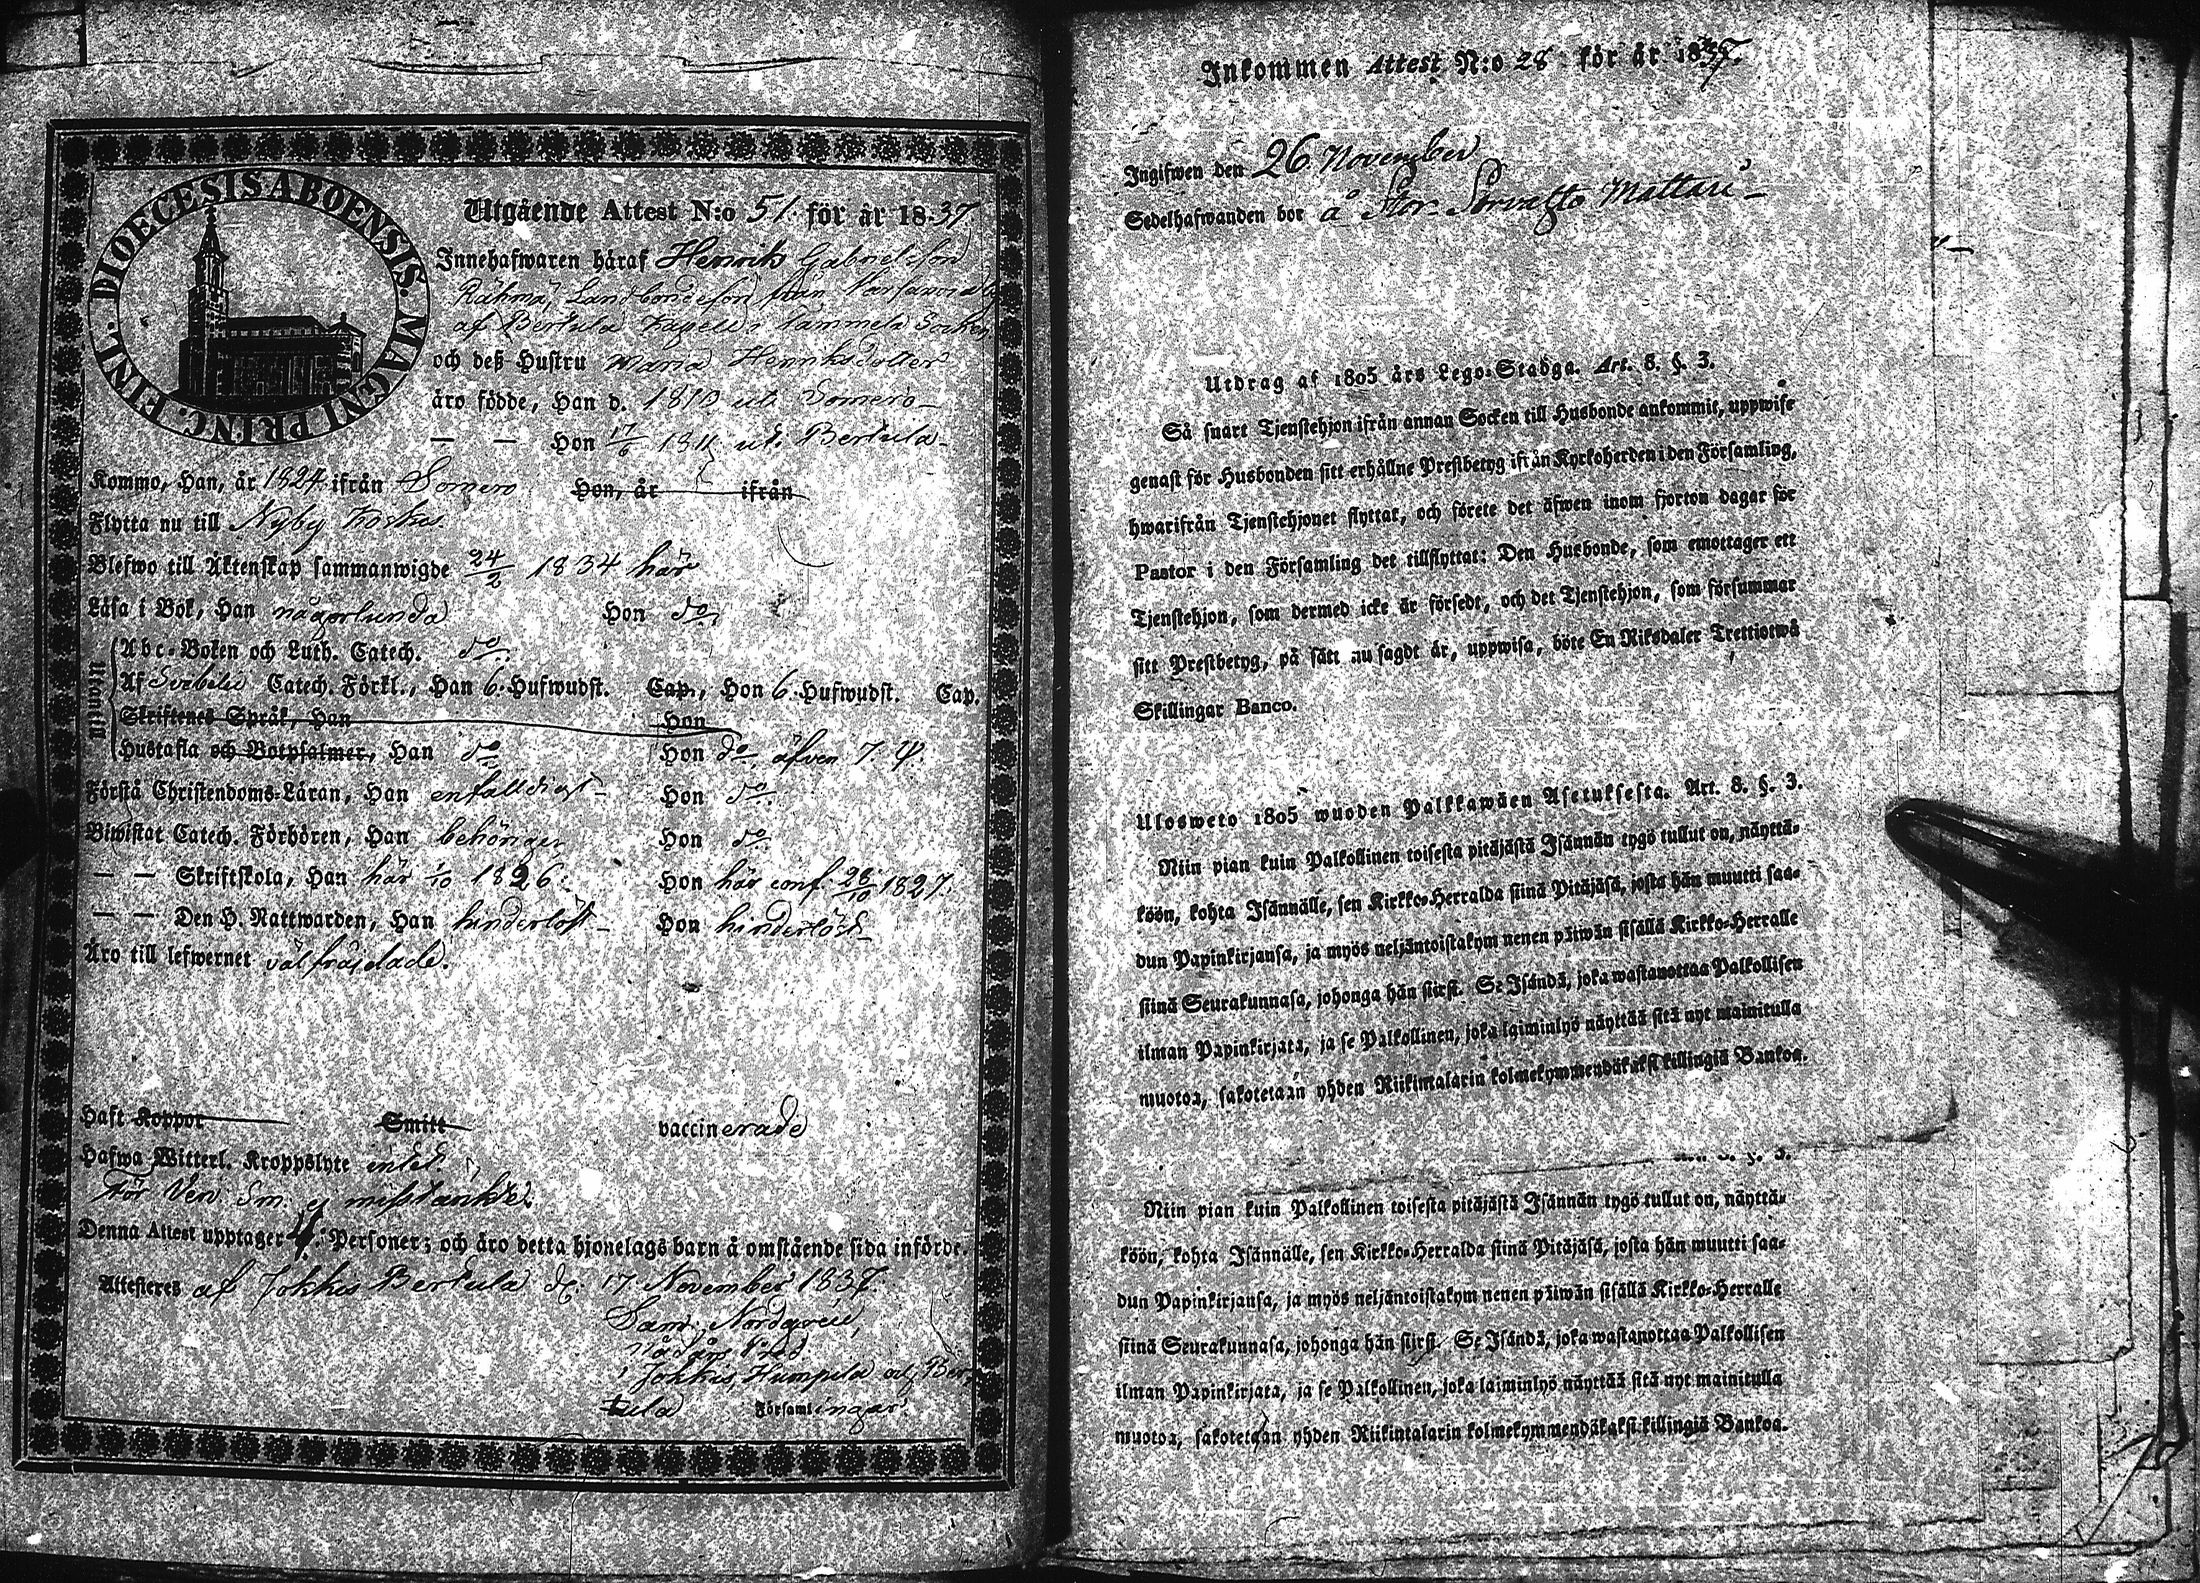 DIOECESIS ABOENSIS. MAGNI PRINC. FINL.
Utgående Attest N:o 51. för år 18.37
Innehafwaren håraf Henrik Gabrielsson
Rähmä, Landbondeson från
af Bertula Kapell i Tammela Socken,
och deß Hustru Maria Henriksdotter
äro födde, Han d. 1810 ut. Somero –
— — Hon 17/6 1811 ut. Bertula –
Kommo, Han, år 1824 ifrån Somero Hon, år ifrån
Flytta nu till Nyby Koskis.
Blefwo till Äktenskap sammanwigde 24/2 1834 här
Läsa i Bok, Han någorlunda Hon do
Utantill
Abc-Boken och Luth. Catech. do
Af Svebelii Catech. Förkl., Han 6. Hufwudst. Cap., Hon 6. Hufwudst. Cap.
Skriftenes Språk, Han Hon
Hustafla och Botpsalmer, Han do Hon do äfven 7. ψ.
Förstå Christendoms-Läran, Han enfalldigt – Hon do
Biwistat Catech. Förhören, Han behörigen Hon do
— — Skriftskola, Han här 1/10 1826. Hon här conf. 28/10 1827.
— — Den H. Nattwarden, Han hinderlöst – Hon hinderlöst –
Äro till lefwernet välfräjdade.
Haft Koppor Smitt vaccinerade
Hafwa Witterl. Kroppslyte intet.
För Ven. Sm. ej misstänkte.
Denna Attest upptager 4. Personer; och äro detta hjonelags barn å omstående sida införde.
Attesteres af Jokkis Bertula d. 17 November 1837.
Sam. Nordgren,
i Jokkis, Humpila och Ber-
tula Församlingar.
Inkommen Attest N:o 28 för år 1837.
Ingifwen den 26 November
Sedelhafwanden bor å Stor Sorvasto Mattari –
Utdrag af 1805 års Lego-Stadga. Art. 8. §. 3.
Så snart Tjenstehjon ifrån annan Socken till Husbonde ankommit, uppwise
genast för Husbonden sitt erhållne Prestbetyg ifrån Kyrkoherden i den Församling,
hwarifrån Tjenstehjonet flyttat, och förete det äfwen inom fjorton dagar för
Pastor i den Församling det tillflyttat: Den Husbonde, som emottager ett
Tjenstehjon, som dermed icke är försedt, och det Tjenstehjon, som försummar
sitt Prestbetyg, på sätt nu sagdt är, uppwisa, böte En Riksdaler Trettiotwå
Skillingar Banco.
Ulosweto 1805 wuoden Palkkawäen Asetuksesta. Art. 8. §. 3.
Niin pian kuin Palkollinen toisesta pitäjästä Isännän tygö tullut on, näyttä-
köön, kohta Isännälle, sen Kirkko-Herralda siinä Pitäjäsä, josta hän muutti saa-
dun Papinkirjansa, ja myös neljäntoistakym nenen päiwän sisällä Kirkko-Herralle
siinä Seurakunnasa, johonga hän siirsi. Se Isändä, joka wastanottaa Palkollisen
ilman Papinkirjata, ja se Palkollinen, joka laiminlyö näyttää sitä nyt mainitulla
muotoa, sakotetaan yhden Riikintalarin kolmekymmendäkaksi killingiä Bankoa.
§. 3.
Niin pian kuin Palkollinen toisesta pitäjästä Isännän tygö tullut on, näyttä-
köön, kohta Isännälle, sen Kirkko-Herralda siinä Pitäjäsä, josta hän muutti saa-
dun Papinkirjansa, ja myös neljäntoistakym nenen päiwän sisällä Kirkko-Herralle
siinä Seurakunnasa, johonga hän siirsi. Se Isändä, joka wastanottaa Palkollisen
ilman Papinkirjata, ja se Palkollinen, joka laiminlyö näyttää sitä nyt mainitulla
muotoa, sakotetaan yhden Riikintalarin kolmekymmendäkaksi killingiä Bankoa.